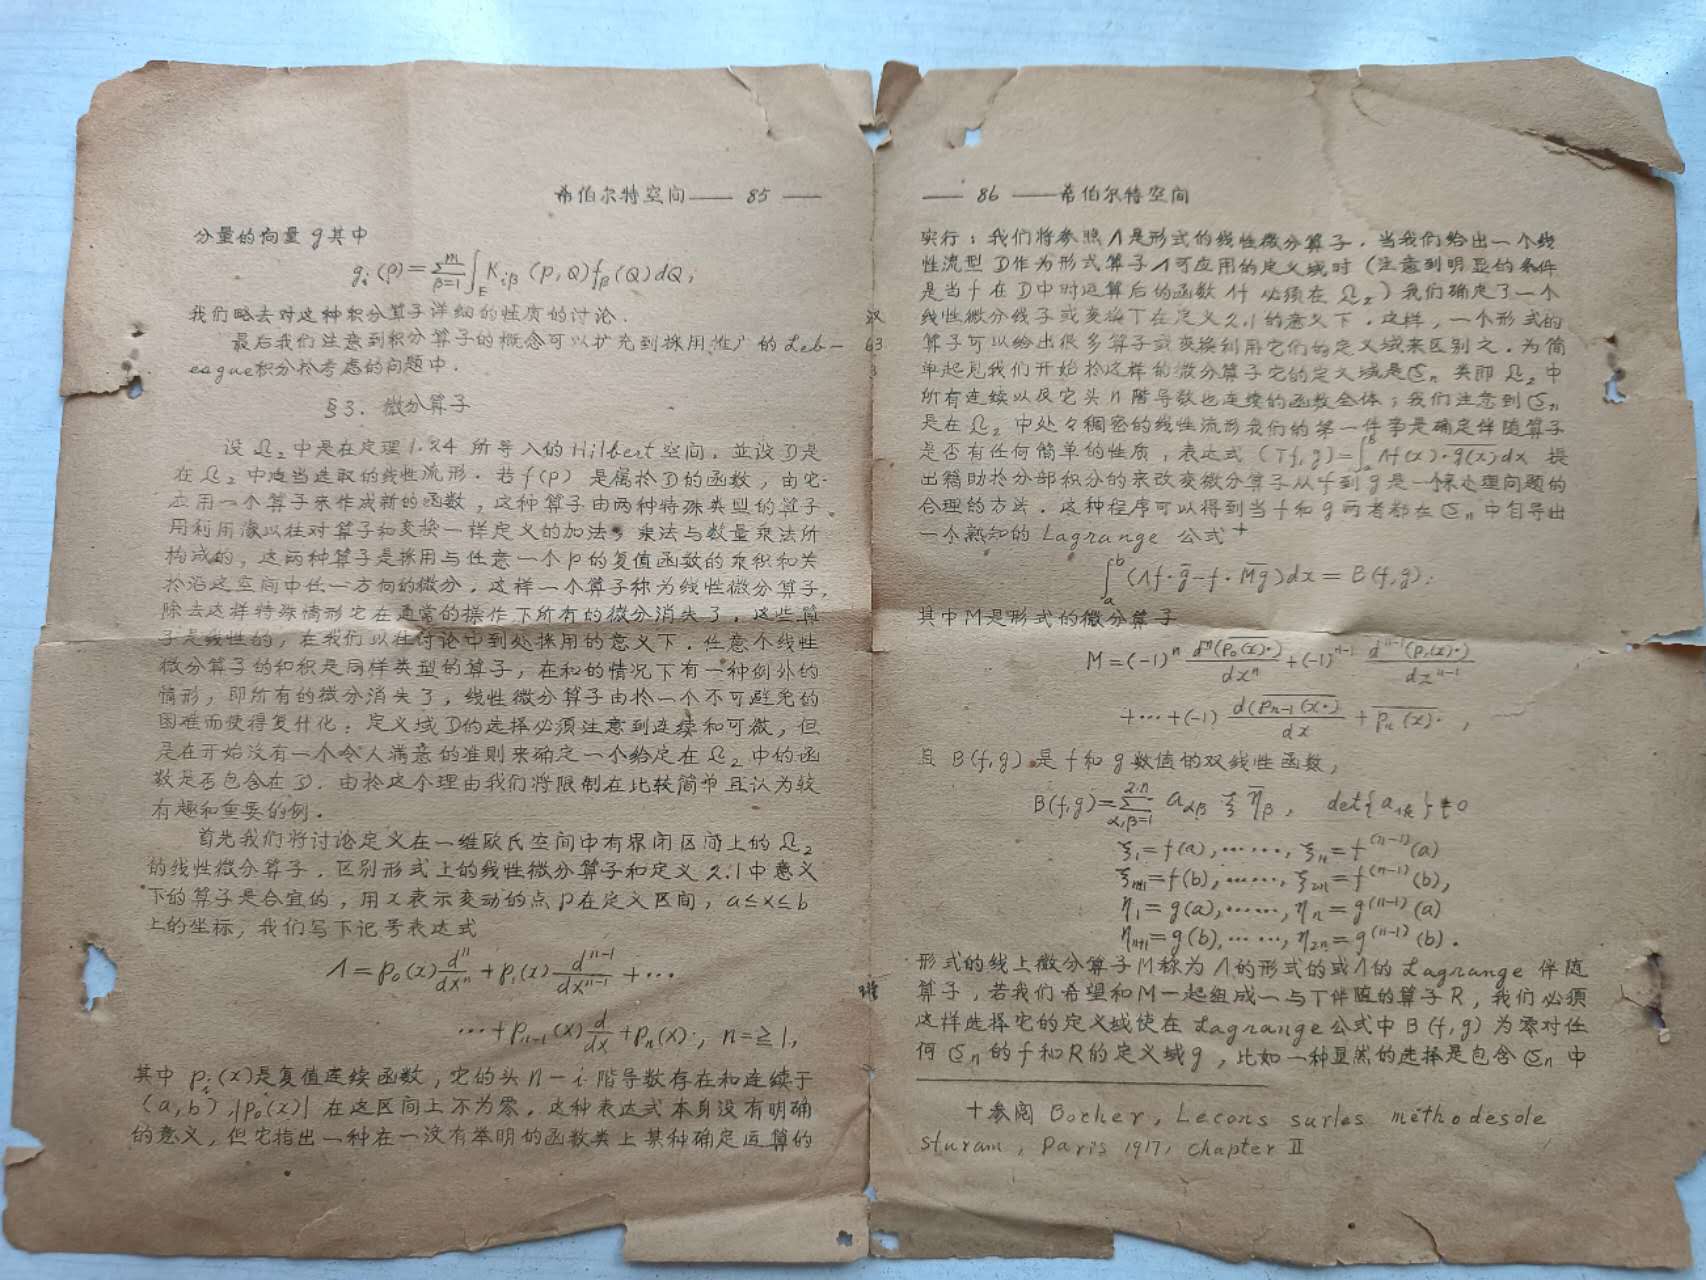 希伯尔特空间—— 85 ——
分量的向量 g其中
gᵢ(p)=∑_{β=1}^{m}∫_E K_{iβ}(p,Q)f_β(Q)dQ,
我们略去对这种积分算子详细的性质的讨论.
最后我们注意到积分算子的概念可以扩充到採用推广的Leb-
esgue积分於考虑的问题中.
§3. 微分算子
设 Ω₂中是在定理1.24 所导入的Hilbert空间,並设D是
在 Ω₂ 中适当选取的线性流形.若 f(p) 是属於D的函数,由它
应用一个算子来作成新的函数,这种算子由两种特殊类型的算子
用利用像以往对算子和变换一样定义的加法 乘法与数量乘法所
构成的,这两种算子是採用与任意一个p的复值函数的乘积和关
於沿这空间中任一方向的微分.这样一个算子称为线性微分算子,
除去这样特殊情形它在通常的操作下所有的微分消失了.这些算
子是线性的,在我们以往讨论中到处採用的意义下.任意个线性
微分算子的和积是同样类型的算子,在和的情况下有一种例外的
情形,即所有的微分消失了,线性微分算子由於一个不可避免的
困难而使得复什化:定义域D的选择必须注意到连续和可微,但
是在开始没有一个令人满意的准则来确定一个给定在Ω₂中的函
数是否包含在D.由於这个理由我们将限制在比较简单且认为较
有趣和重要的例.
首先我们将讨论定义在一维欧氏空间中有界闭区间上的Ω₂
的线性微分算子.区别形式上的线性微分算子和定义2.1中意义
下的算子是合宜的,用x表示变动的点p在定义区间,a≤x≤b
上的坐标,我们写下记号表达式
Λ=p₀(x)dⁿ/dxⁿ+p₁(x)dⁿ⁻¹/dxⁿ⁻¹+⋯
⋯+pₙ₋₁(x)d/dx+pₙ(x)·, n=≧1,
其中 pᵢ(x)是复值连续函数,它的头n-i 階导数存在和连续于
(a,b),|p₀(x)| 在这区间上不为零.这种表达式本身没有明确
的意义,但它指出一种在一没有举明的函数类上某种确定运算的
—— 86 ——希伯尔特空间
实行:我们将参照Λ是形式的线性微分算子.当我们给出一个线
性流型D作为形式算子Λ可应用的定义域时(注意到明显的条件
是当f在D中时运算后的函数Λf必须在Ω₂)我们确定了一个
线性微分线子或变换T在定义2.1的意义下.这样,一个形式的
算子可以给出很多算子或变换利用它们的定义域来区别之.为简
单起见我们开始於这样的微分算子它的定义域是𝔖ₙ类即Ω₂中
所有连续以及它头n階导数也连续的函数全体;我们注意到𝔖ₙ
是在Ω₂中处々稠密的线性流形我们的第一件事是确定伴随算子
是否有任何简单的性质,表达式 (Tf,g)=∫ₐᵇΛf(x)·g̅(̅x̅)̅dx 提
出藉助於分部积分的来改变微分算子从f到g是一个来处理问题的
合理的方法.这种程序可以得到当f和g两者都在𝔖ₙ中自导出
一个熟知的Lagrange 公式⁺
∫ₐᵇ(Λf·g̅-f·M̅g̅)dx=B(f,g);
其中M是形式的微分算子
M=(-1)ⁿ dⁿ(p̅₀̅(̅x̅)̅·)/dxⁿ+(-1)ⁿ⁻¹ dⁿ⁻¹(p̅₁̅(̅x̅)̅·)/dxⁿ⁻¹
+⋯+(-1) d(p̅ₙ₋₁̅(̅x̅·)/dx+p̅ₙ̅(̅x̅)̅·,
且 B(f,g)是f和g数值的双线性函数,
B(f,g)=∑_{α,β=1}^{2n} a_{αβ} ξ η̅_β, det{a_{ik}}≠0
ξ₁=f(a),⋯⋯,ξₙ=f⁽ⁿ⁻¹⁾(a)
ξₙ₊₁=f(b),⋯⋯,ξ₂ₙ=f⁽ⁿ⁻¹⁾(b),
η₁=g(a),⋯⋯,ηₙ=g⁽ⁿ⁻¹⁾(a)
ηₙ₊₁=g(b),⋯⋯,η₂ₙ=g⁽ⁿ⁻¹⁾(b).
形式的线上微分算子M称为Λ的形式的或Λ的Lagrange 伴随
算子,若我们希望和M一起组成一与T伴随的算子R,我们必须
这样选择它的定义域使在Lagrange公式中B(f,g)为零对任
何𝔖ₙ的f和R的定义域g,比如一种显然的选择是包含𝔖ₙ中
十参阅 Bocher, Lecons surles méthodesole
sturam, Paris 1917, chapter Ⅱ